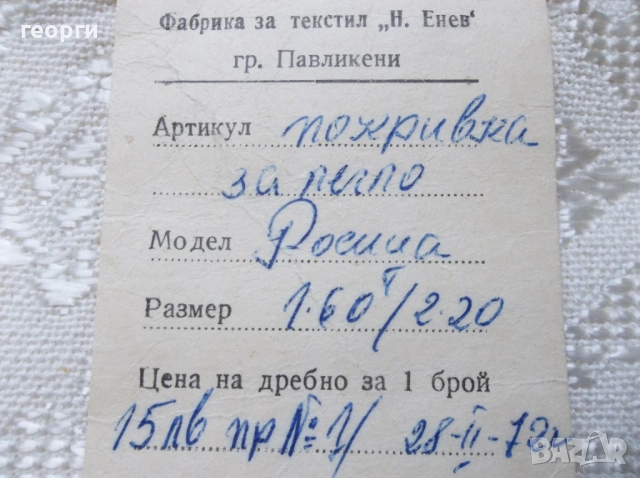 георги
Фабрика за текстил „Н. Енев“
гр. Павликени
Артикул покривка
за легло
Модел Росица
Размер 1.60/2.20
Цена на дребно за 1 брой
15 лв пр № 1/ 28-II-79г
BAZAR